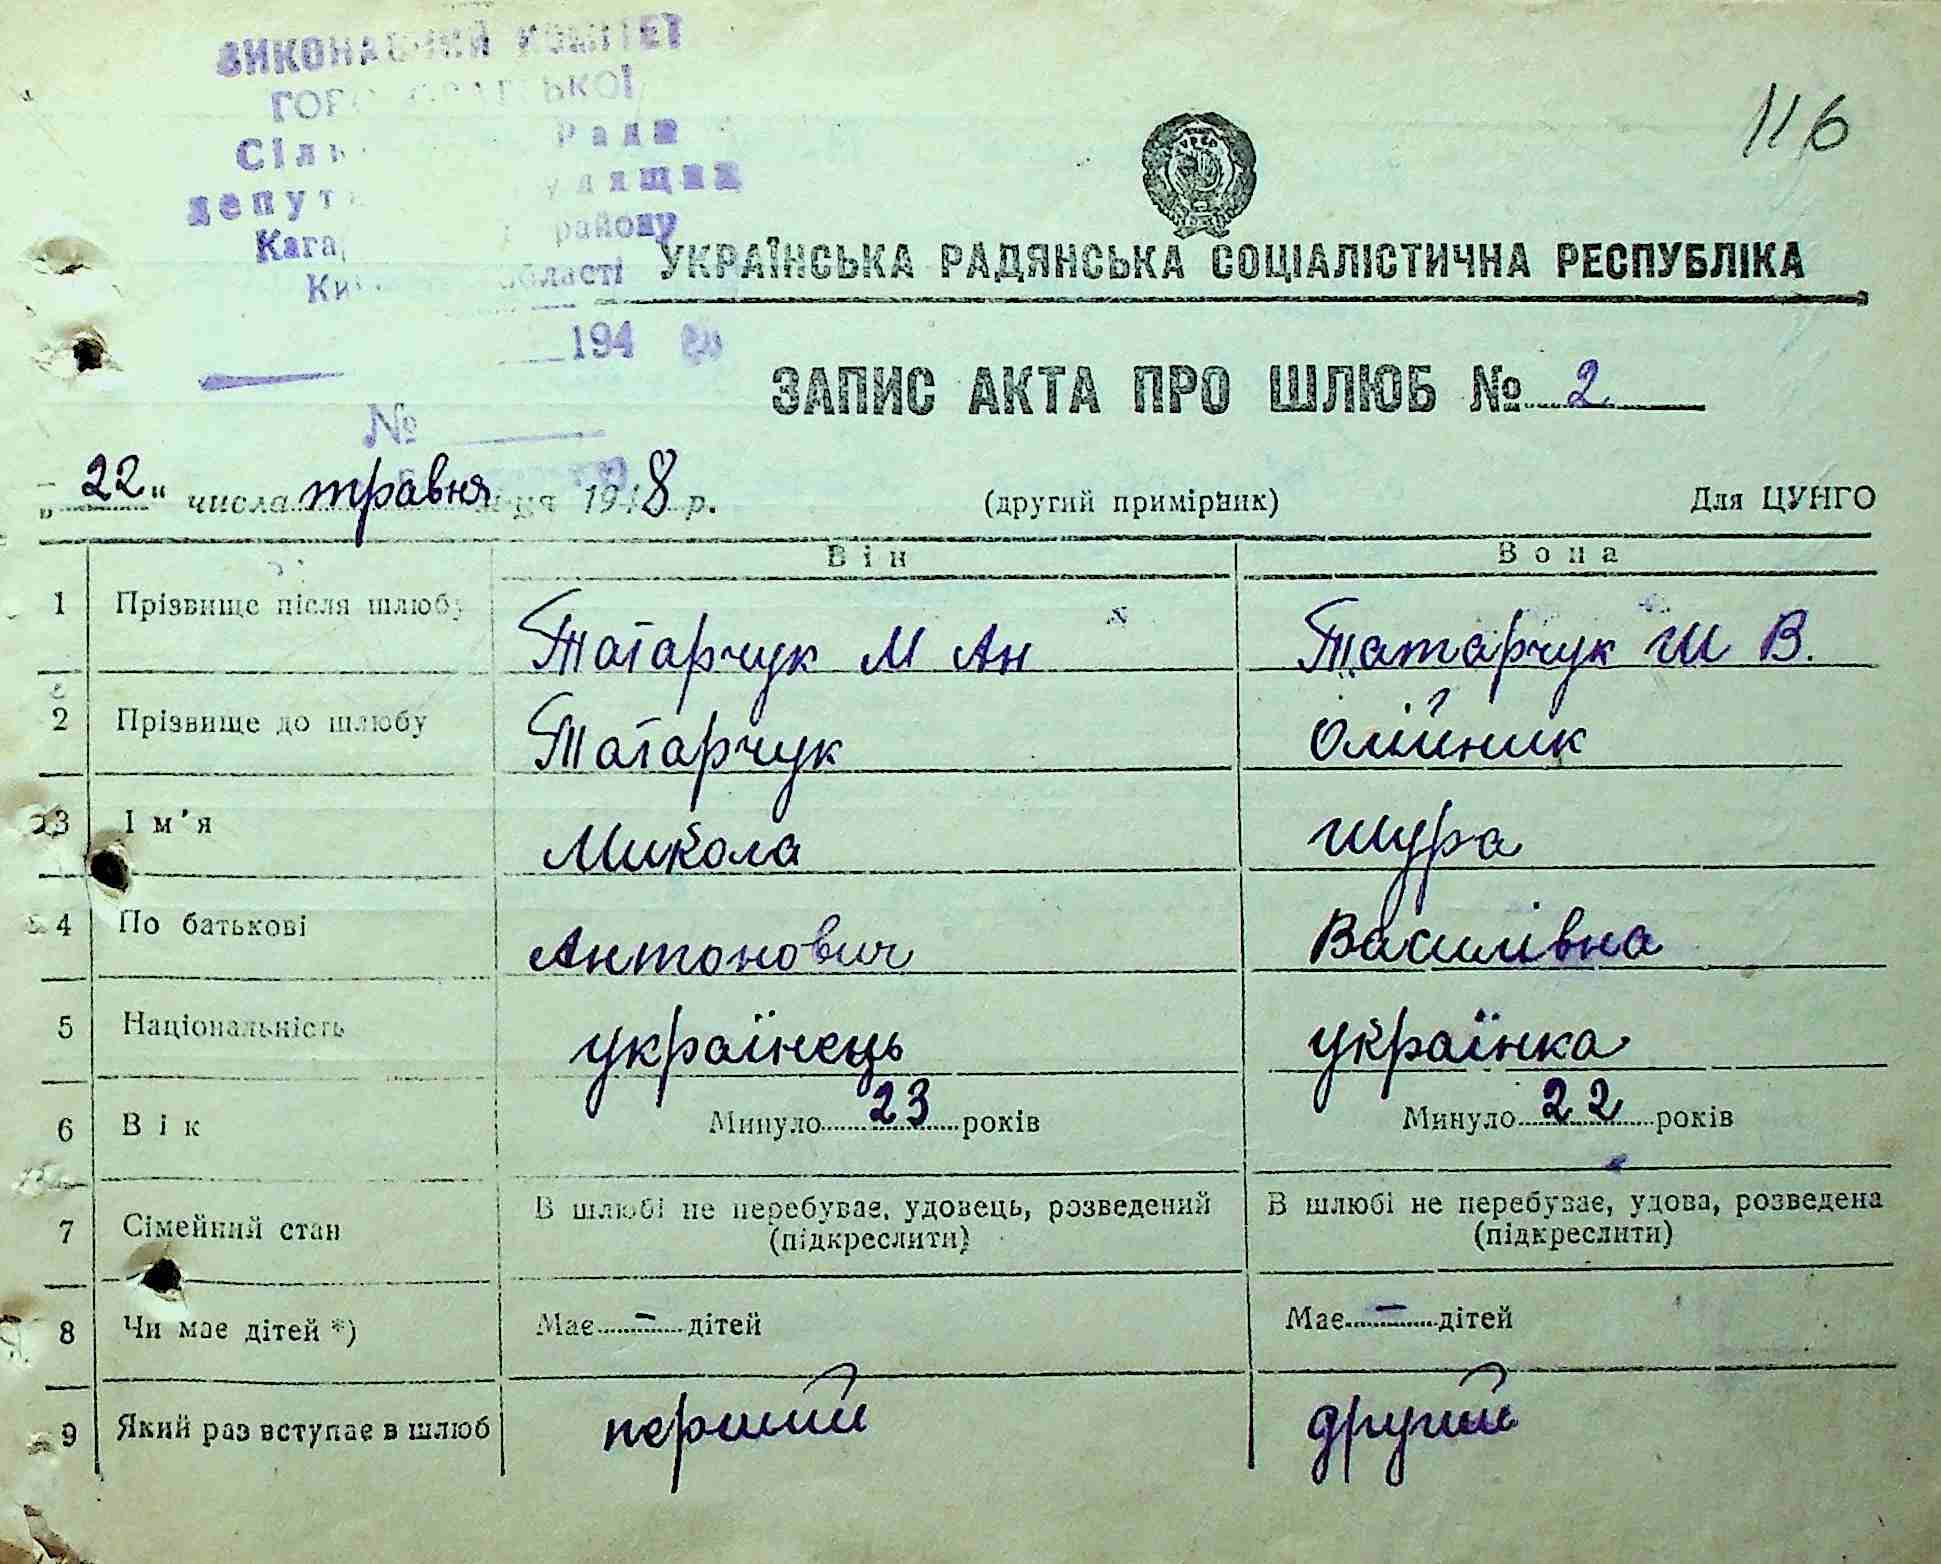 ВИКОНАВЧИЙ КОМІТЕТ
Рада
районy
області
194
№
116
УКРАЇНСЬКА РАДЯНСЬКА СОЦІАЛІСТИЧНА РЕСПУБЛІКА
ЗАПИС АКТА ПРО ШЛЮБ № 2
„22" числа травня м-ця 1948 р. (другий примірник) Для ЦУНГО
Він Вона
1 Прізвище після шлюбу Татарчук М Ан Татарчук Ш В.
2 Прізвище до шлюбу Татарчук Олійник
3 Ім'я Микола Шура
4 По батькові Антонович Василівна
5 Національність українець українка
6 Вік Минуло 23 років Минуло 22 років
7 Сімейний стан В шлюбі не перебуває, удовець, розведений (підкреслити) В шлюбі не перебуває, удова, розведена (підкреслити)
8 Чи має дітей *) Має – дітей Має – дітей
9 Який раз вступає в шлюб перший другий